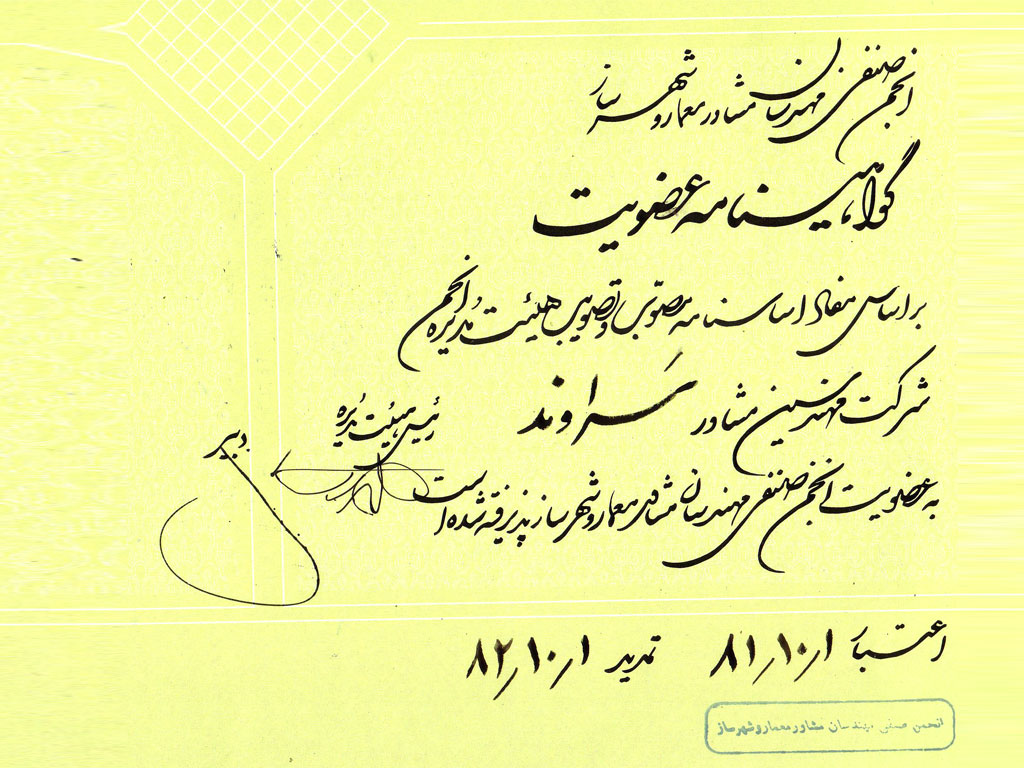 انجمن صنفی مهندسان مشاور معمار و شهرساز
گواهینامه عضویت
براساس مفاد اساسنامه مصوّب و تصویب هیئت مُدیره انجمن
شرکت مهندسین مشاور سَراوند
به عضویت انجمن صنفی مهندسان مشاور معمار و شهرساز پذیرفته شده است
رئیس هیئت مدیره
دبیر
اعتبار ۸۱٫۱۰٫۱ تمدید ۸۲٫۱۰٫۱
انجمن صنفی مهندسان مشاور معمار و شهرساز